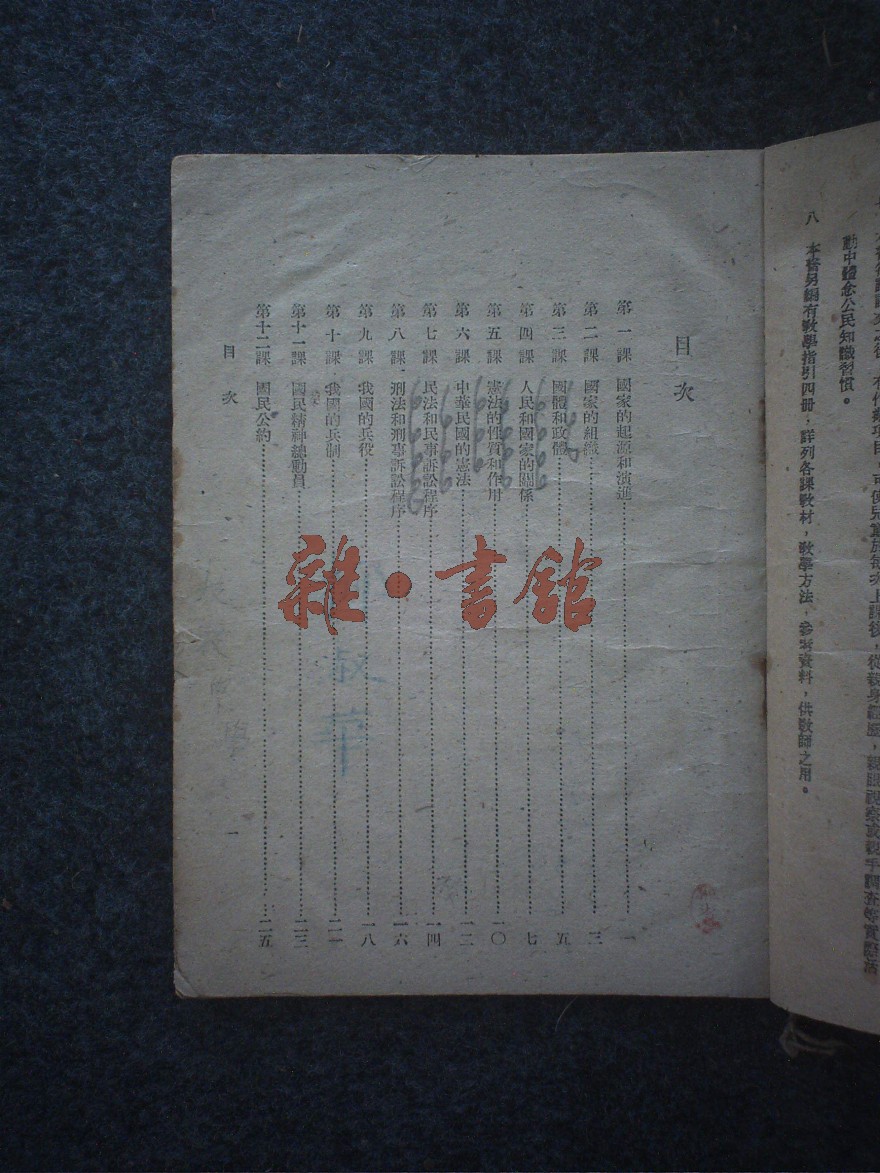 動中體念公民知識習慣。
八　本書另編有教學指引四册，詳列各課教材，教學方法，參考資料，供教師之用。
目次
第一課　國家的起源和演進……一
第二課　國家的組織……三
第三課　國體和政體……五
第四課　人民和國家的關係……七
第五課　憲法的性質和作用……一〇
第六課　中華民國的憲法……一二
第七課　民法和民事訴訟程序……一四
第八課　刑法和刑事訴訟程序……一六
第九課　我國的兵役……一八
第十課　我國的兵制……二一
第十一課　國民精神總動員……二三
第十二課　國民公約……二五
目次　一
雜·書館